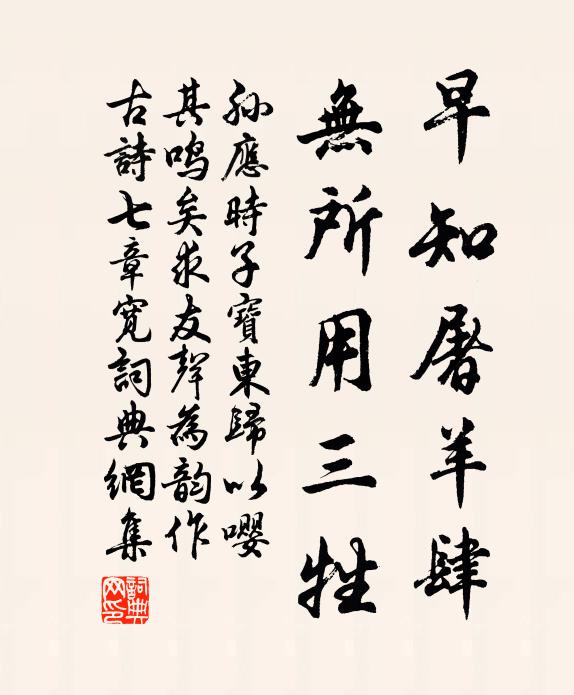 早知屠羊肆
無所用三牲
孫應時子寶東歸以嚶
其鳴矣求友聲為韵作
古詩七章寬詞典網集
詞典
网印